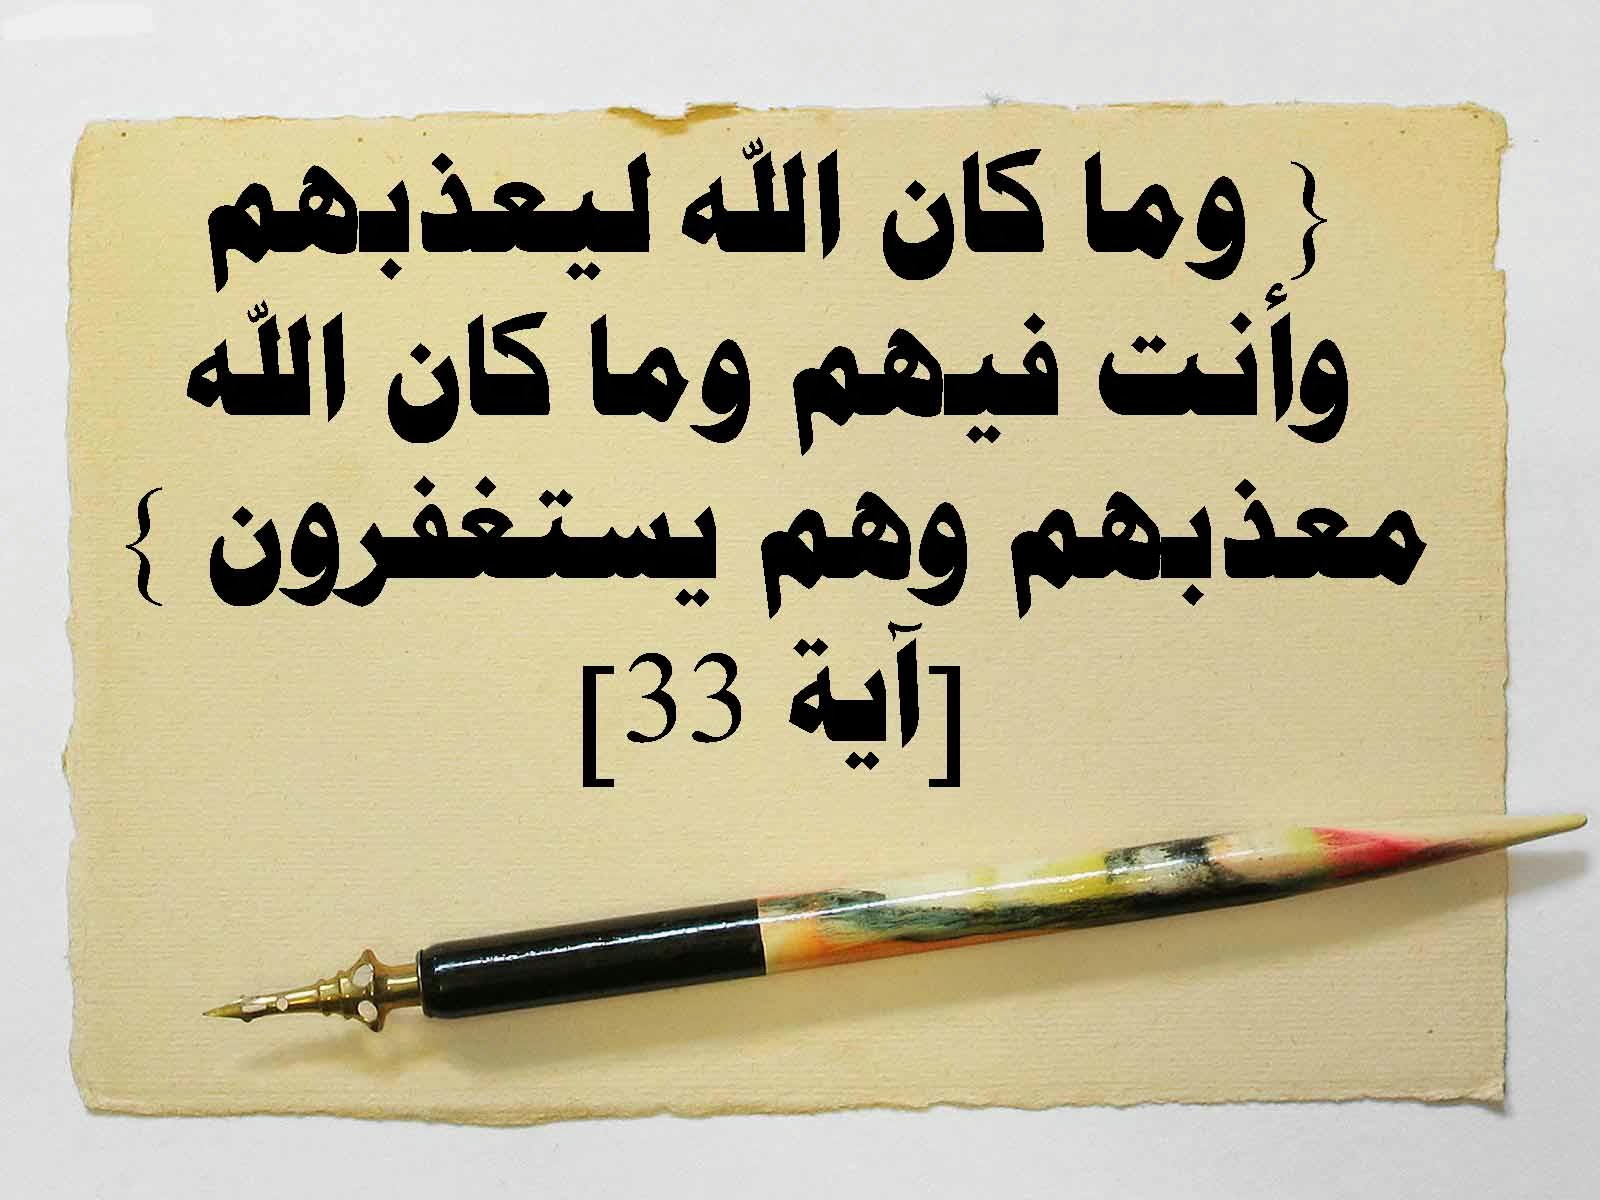 { وما كان الله ليعذبهم
وأنت فيهم وما كان الله
معذبهم وهم يستغفرون }
[آية 33]